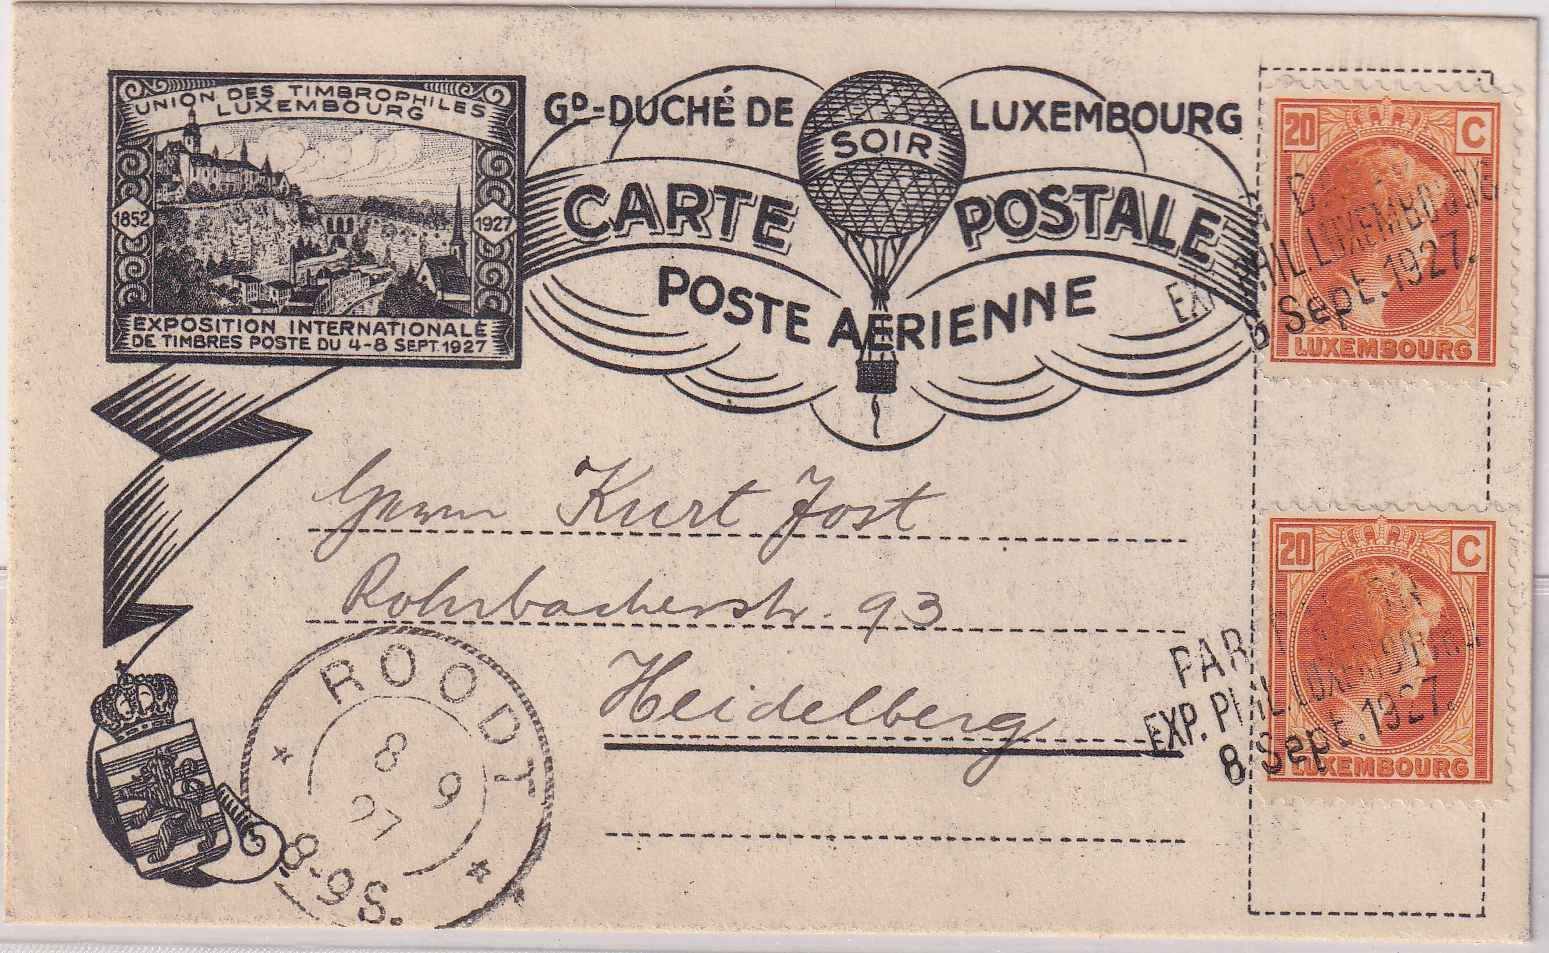 UNION DES TIMBROPHILES
LUXEMBOURG
1852
1927
EXPOSITION INTERNATIONALE
DE TIMBRES POSTE DU 4-8 SEPT. 1927
GD-DUCHÉ DE LUXEMBOURG
SOIR
CARTE POSTALE
POSTE AÉRIENNE
20 C
LUXEMBOURG
EXP. PHIL LUXEMBOURG
8 Sept. 1927.
Herrn Kurt Jost
Rohrbacherstr. 93
Heidelberg
20 C
LUXEMBOURG
PAR
EXP. PHIL LUXEMBOURG
8 Sept. 1927.
ROODT
8
9
27
8-9 S.